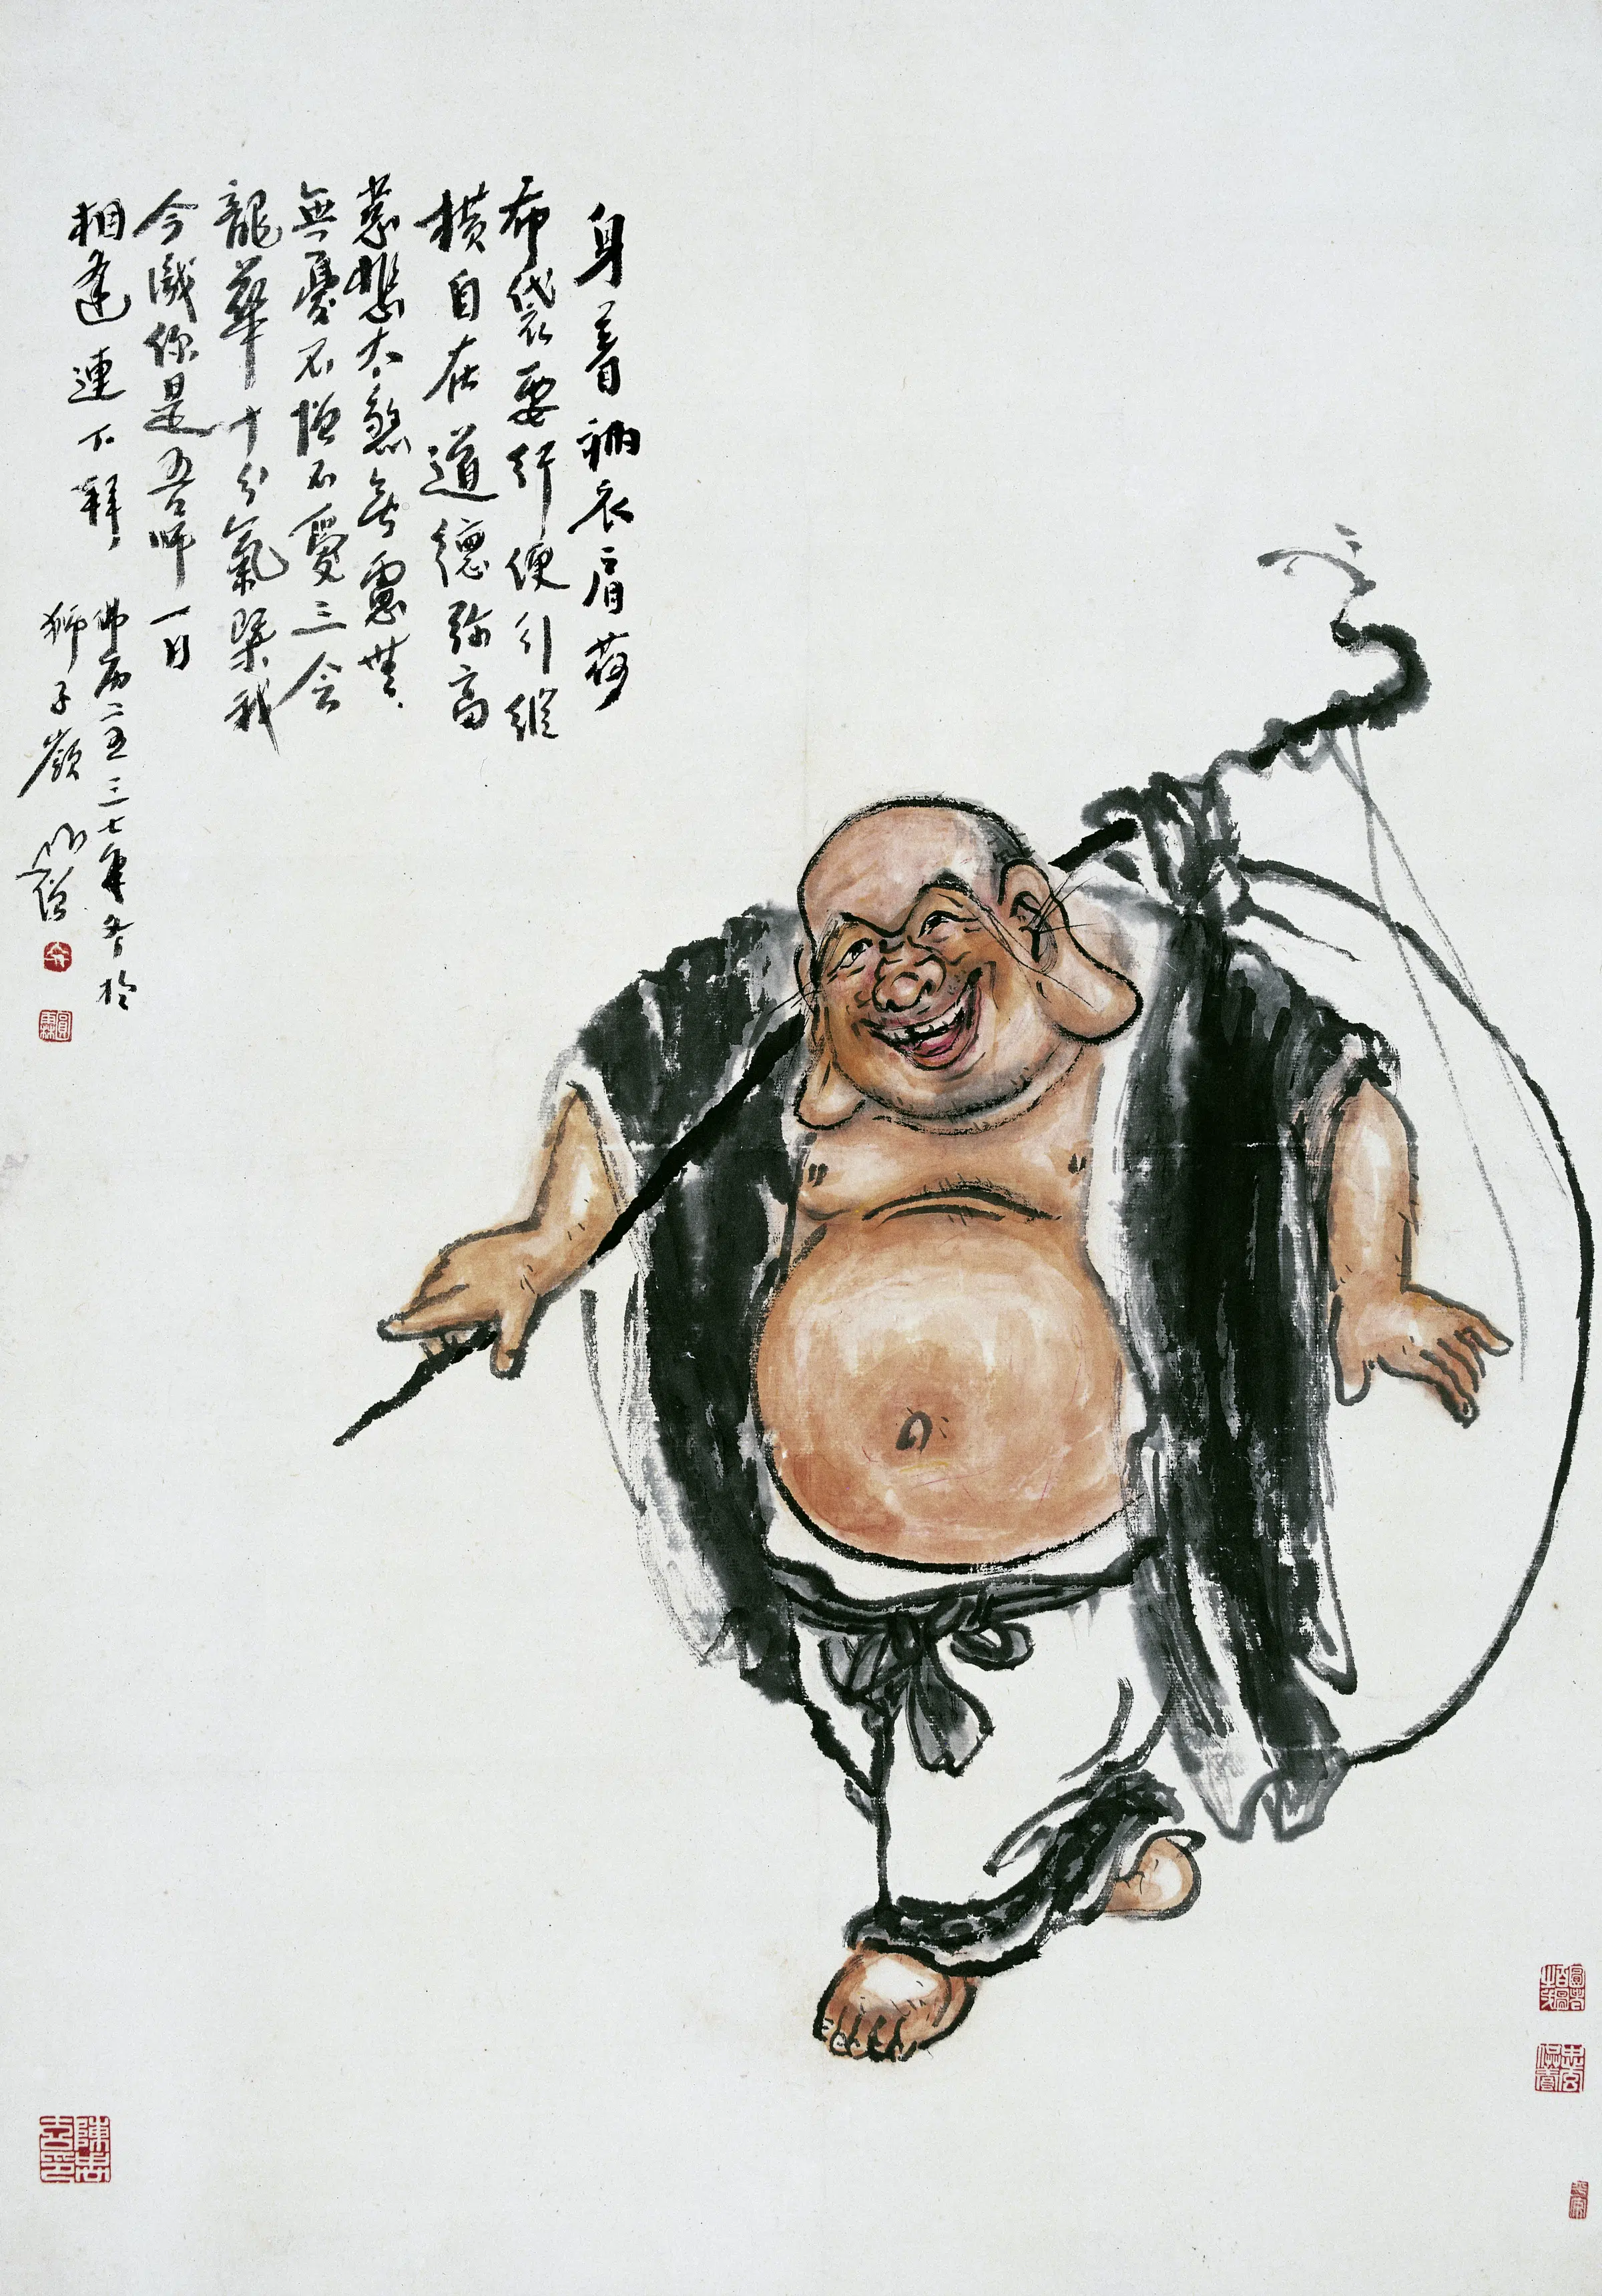 身着衲衣肩荷
布袋要行便引縱
橫自在道德弥高
慈悲太煞無慮無
無憂不憎不愛三会
龍華十分氣槩我
今識你是吾师一日
相逢連下拜
佛历二五三七年冬於
獅子嶺 山僧
圓霖